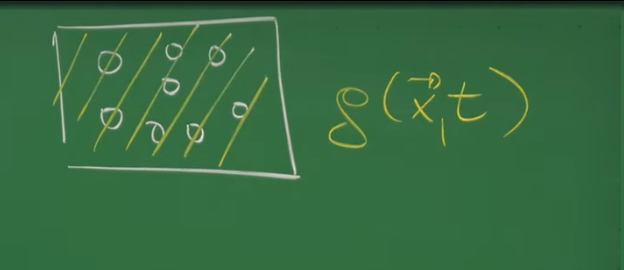 ρ(x⃗,t)